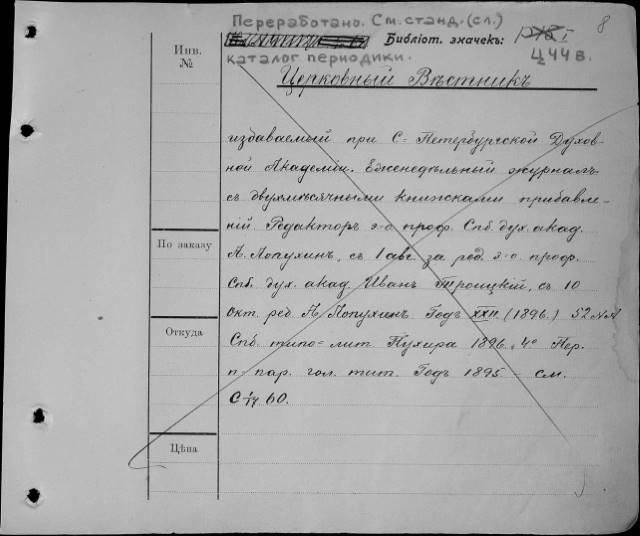 Переработано. См. станд. (сл.)
8
Инв.
№
Библіот. значекъ:
Ц 44 в.
каталог периодики.
Церковный Вѣстникъ
издаваемый при С=Петербургской Духов-
ной Академіи. Еженедѣльный журналъ
съ двухмѣсячными книжками прибавле-
ній Редакторъ э-о проф. Спб. дух. акад.
По заказу
А. Лопухинъ, съ 1 авг. за ред. э-о проф.
Спб. дух. акад. Иванъ Троицкій, съ 10
окт. ред. А. Лопухинъ Годъ XXII (1896.) 52 №№
Откуда
Спб. типо=лит. Пухира 1896. 4º Пер.
п. пар. гол. тит. Годъ 1895 - см.
60.
Цѣна